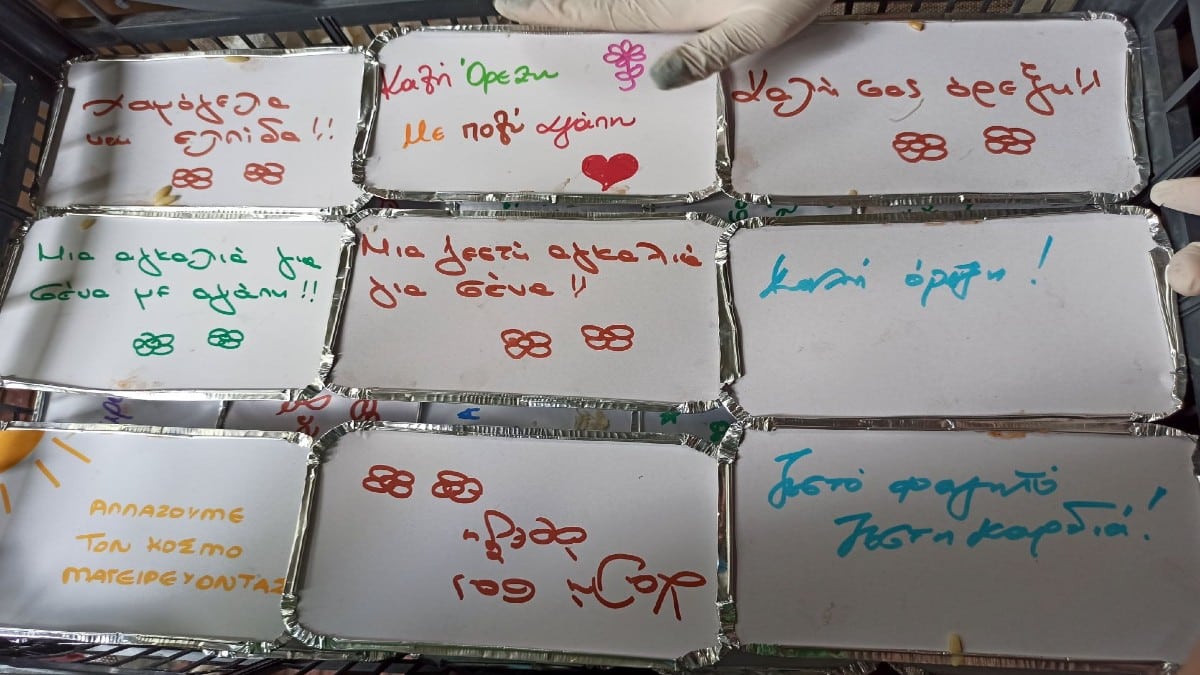 Χαμόγελα
και ελπίδα!!
Καλή Όρεξη
Με πολύ αγάπη
Καλή σας όρεξη!!
Μια αγκαλιά για
σένα με αγάπη!!
Μια ζεστή αγκαλιά
για σένα!!
Καλή όρεξη!
ΑΛΛΑΖΟΥΜΕ
ΤΟΝ ΚΟΣΜΟ
ΜΑΓΕΙΡΕΥΟΝΤΑΣ
Καλή σου
όρεξη
Ζεστό φαγητό
Ζεστή καρδιά!